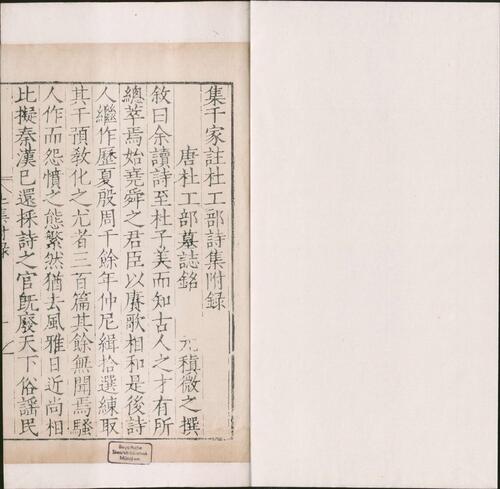 集千家註杜工部詩集附録
唐杜工部墓誌銘 元稹微之撰
敘曰余讀詩至杜子美而知古人之才有所
總萃焉始堯舜之君臣以賡歌相和是後詩
人繼作歷夏殷周千餘年仲尼緝拾選練取
其干預敎化之尤者三百篇其餘無聞焉騷
人作而怨憤之態繁然猶去風雅日近尚相
比擬秦漢已還採詩之官旣廢天下俗謡民
Bayerische
Staatsbibliothek
München